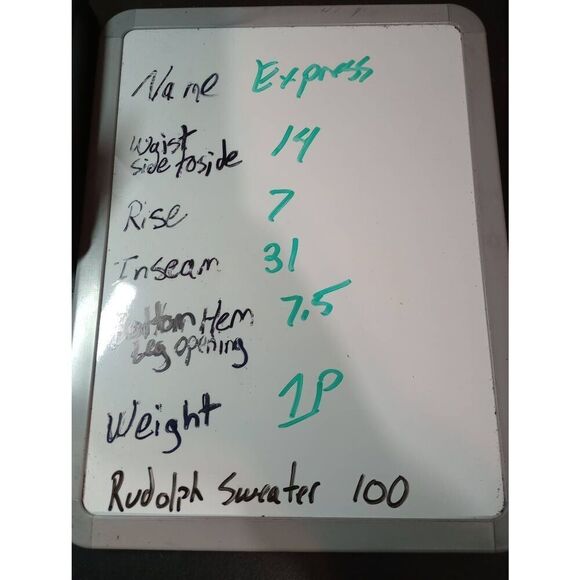 Name Express
Waist
side to side 14
Rise 7
Inseam 31
Bottom Hem 7.5
Leg opening
Weight 1P
Rudolph Sweater 100